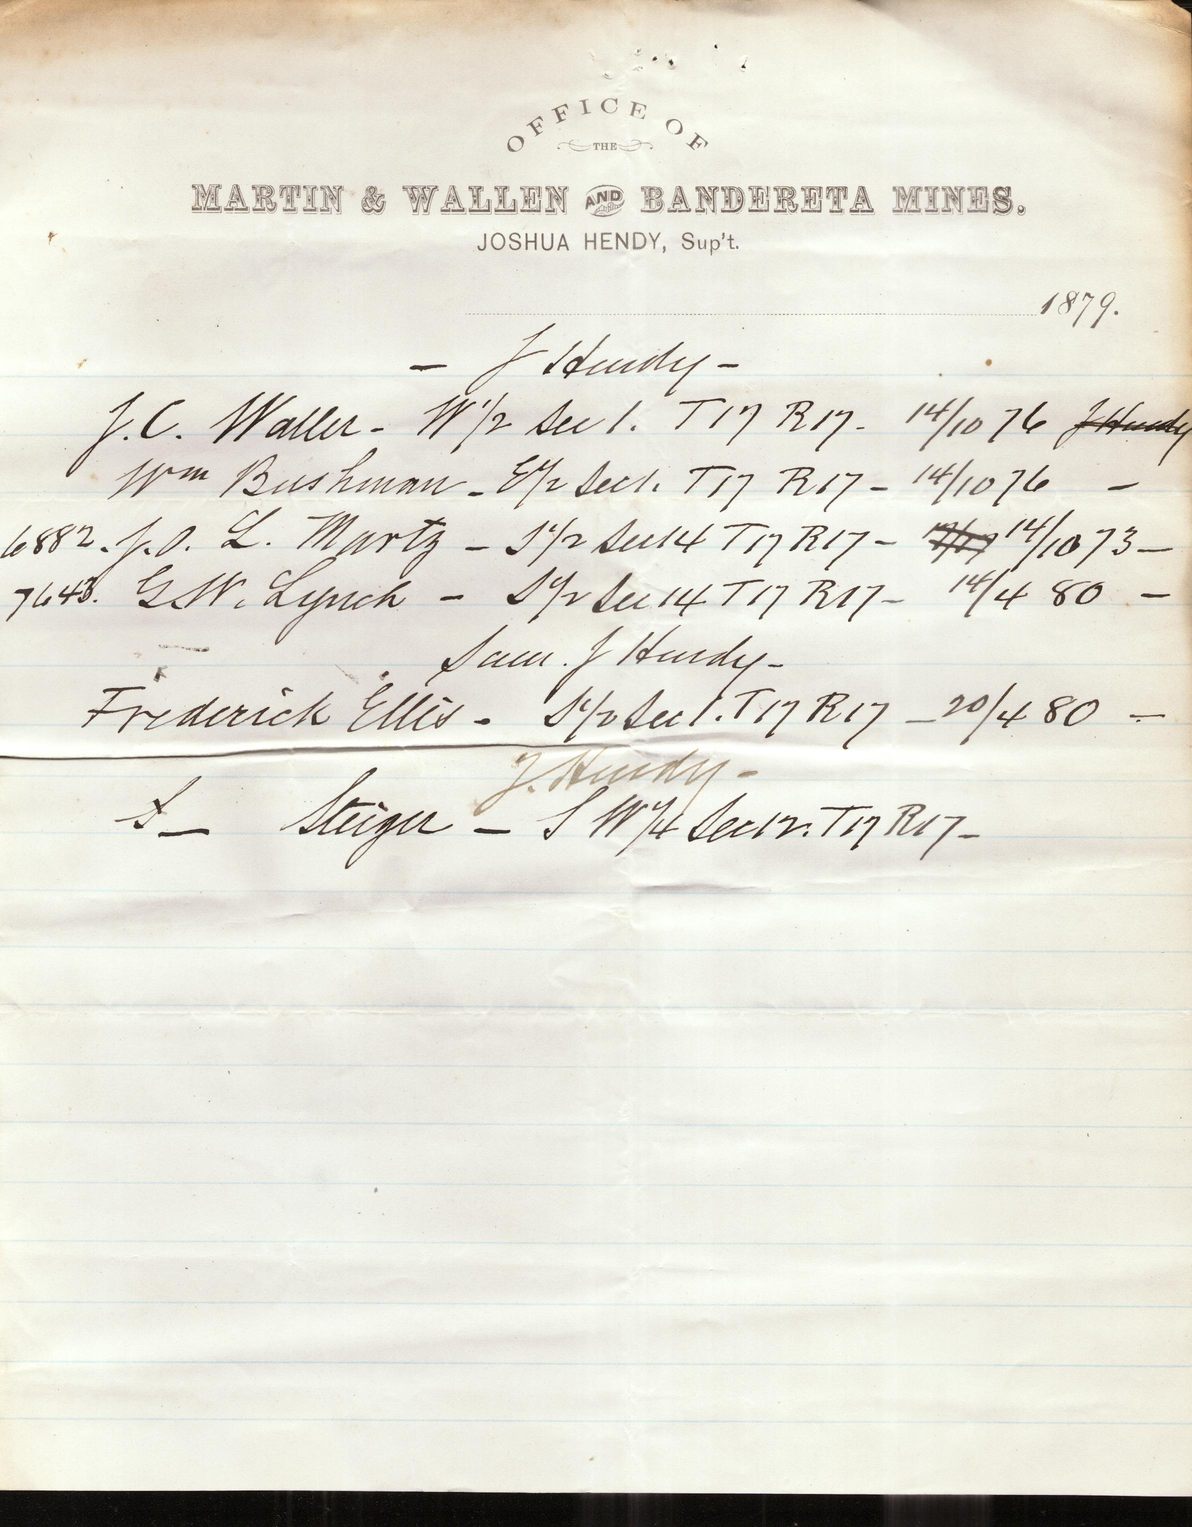 OFFICE OF
THE
MARTIN & WALLEN AND BANDERETA MINES.
JOSHUA HENDY, Sup't.
1879.
- J Hendy -
J.C. Waller - W 1/2 Sec 1. T17 R17 - 14/10 76 J Hendy
Wm Bushman - E 1/2 Sec 1. T17 R17 - 14/10 76 -
6882. J.O. L. Martz - S 1/2 Sec 14 T17 R17 - 14/10 73 -
7643. G W. Lynch - S 1/2 Sec 14 T17 R17 - 14/4 80 -
Sam. J Hendy -
Frederick Ellis - S 1/2 Sec 1. T17 R17 - 20/4 80 -
J. Hendy -
S - Steiger - S W 1/4 Sec 12. T17 R17 -